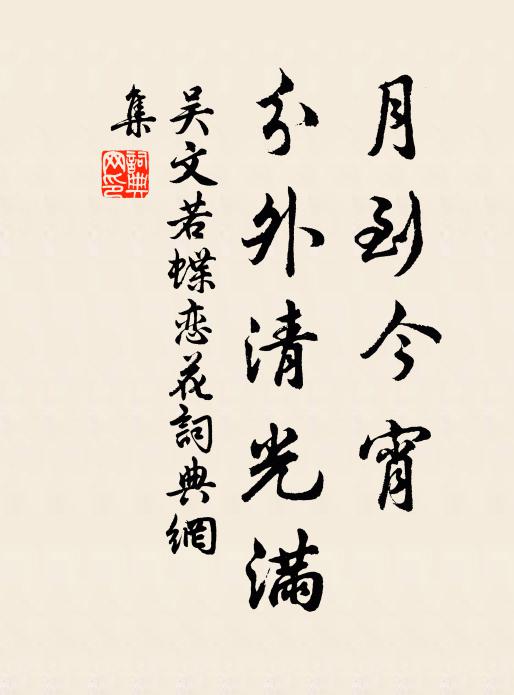 月到今宵
分外清光滿
吴文若蝶恋花詞典網
集
詞典
网印